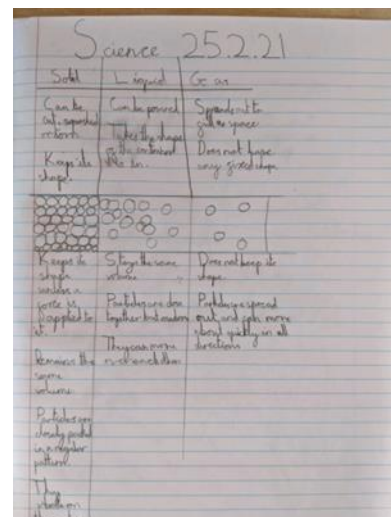 Science 25.2.21
Solid Liquid Gas
Can be
cut, squashed
or torn
Keeps its
shape.
Can be poured
Takes the shape
of the container
its in.
Spreads out to
fill the space
Does not have
any fixed shape.
Keeps its
shape
unless a
force is
applied to
it.
Remains the
same
volume.
Particles are
closely packed
in a regular
pattern.
The
Stays the same
volume
Particles are close
together but random
They can move
each other
Does not keep its
shape.
Particles are spread
out and can move
about quickly in all
directions